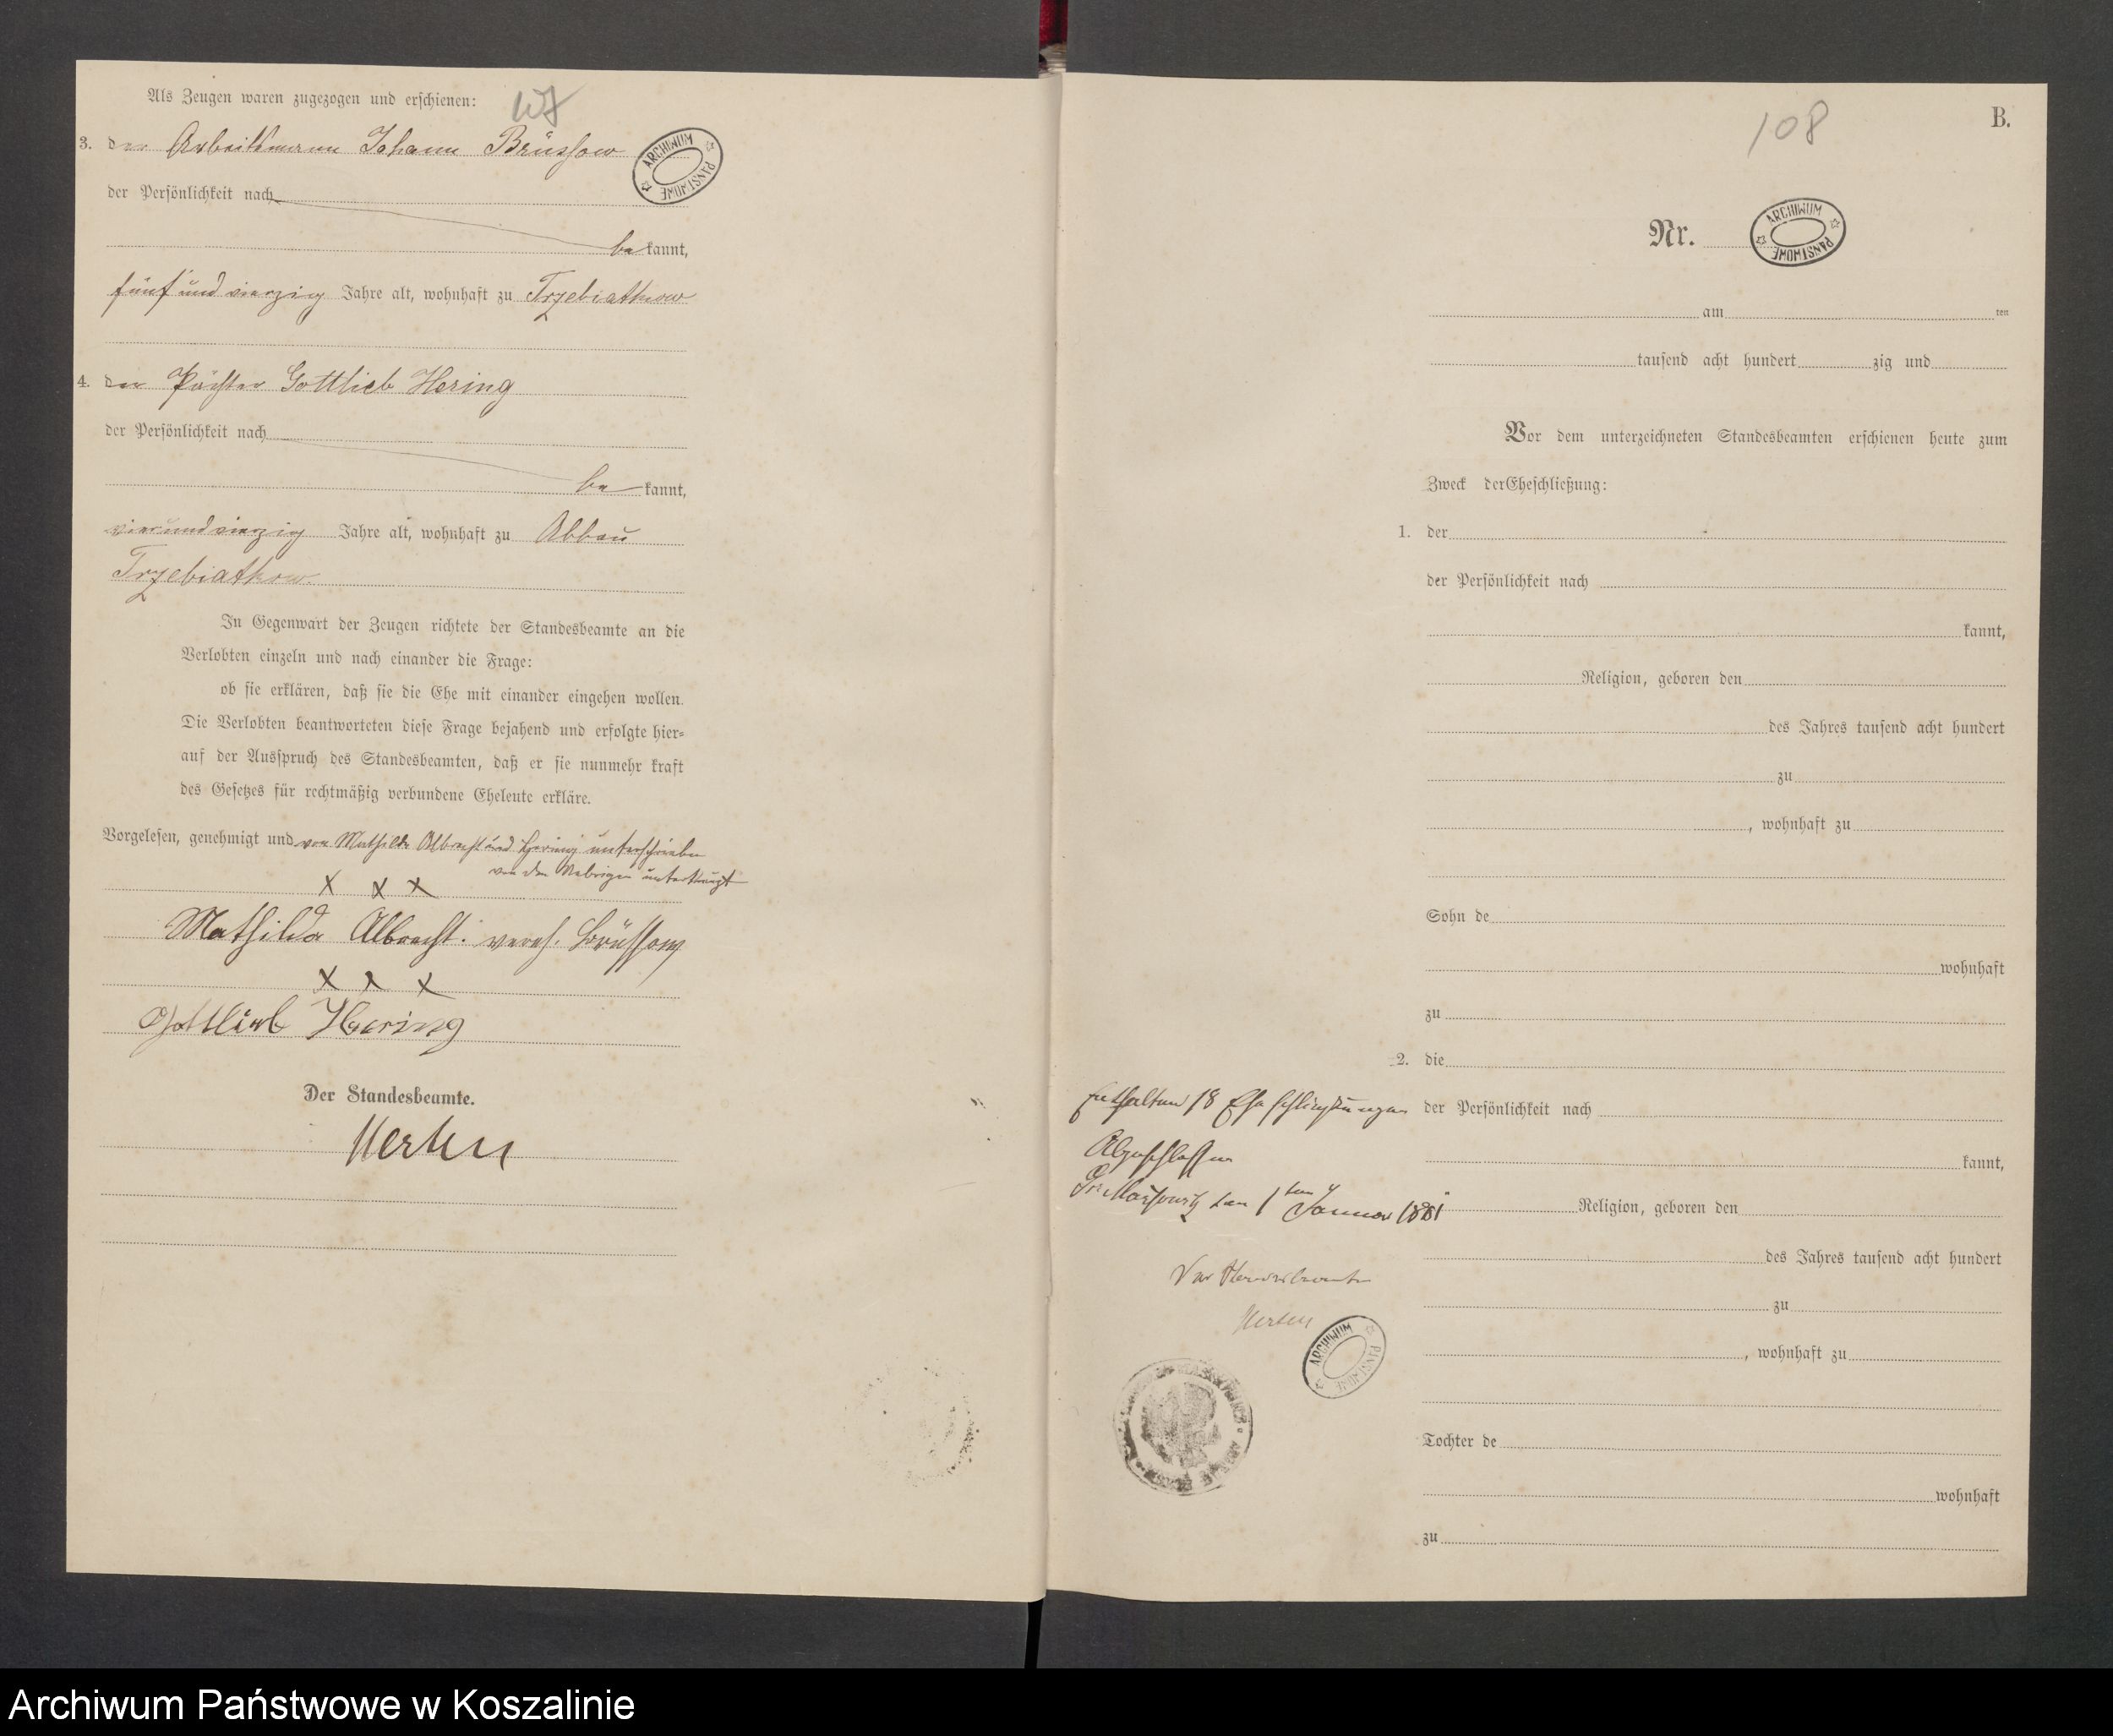 107
Als Zeugen waren zugezogen und erschienen:
3. der Arbeitsmann Johann Brüssow
der Persönlichkeit nach
be kannt,
fünf und vierzig Jahre alt, wohnhaft zu Trzebiatkow
4. der Pächter Gottlieb Hering
der Persönlichkeit nach
be kannt,
vierundvierzig Jahre alt, wohnhaft zu Abbau
Trzebiatkow.
In Gegenwart der Zeugen richtete der Standesbeamte an die
Verlobten einzeln und nach einander die Frage:
ob sie erklären, daß sie die Ehe mit einander eingehen wollen.
Die Verlobten beantworteten diese Frage bejahend und erfolgte hier-
auf der Ausspruch des Standesbeamten, daß er sie nunmehr kraft
des Gesetzes für rechtmäßig verbundene Eheleute erkläre.
Vorgelesen, genehmigt und von Mathilde Albrecht und Hering unterschrieben
von den Uebrigen unterkreuzt
X X X
Mathilda Albrecht. vereh. Brüssow
X X X
Gottlieb Hering
Der Standesbeamte.
Merten
108
B.
Nr.
am ten
tausend acht hundert zig und
Vor dem unterzeichneten Standesbeamten erschienen heute zum
Zweck der Eheschließung:
1. der
der Persönlichkeit nach
kannt,
Religion, geboren den
des Jahres tausend acht hundert
zu
, wohnhaft zu
Sohn de
wohnhaft
zu
2. die
der Persönlichkeit nach
kannt,
Religion, geboren den
des Jahres tausend acht hundert
zu
, wohnhaft zu
Tochter de
wohnhaft
zu
Enthaltend 18 Eheschließungen
Abgeschlossen
Gr. Massowitz den 1ten Januar 1881
Der Standesbeamte
Merten
ARCHIWUM PAŃSTWOWE
ARCHIWUM PAŃSTWOWE
ARCHIWUM PAŃSTWOWE
Archiwum Państwowe w Koszalinie